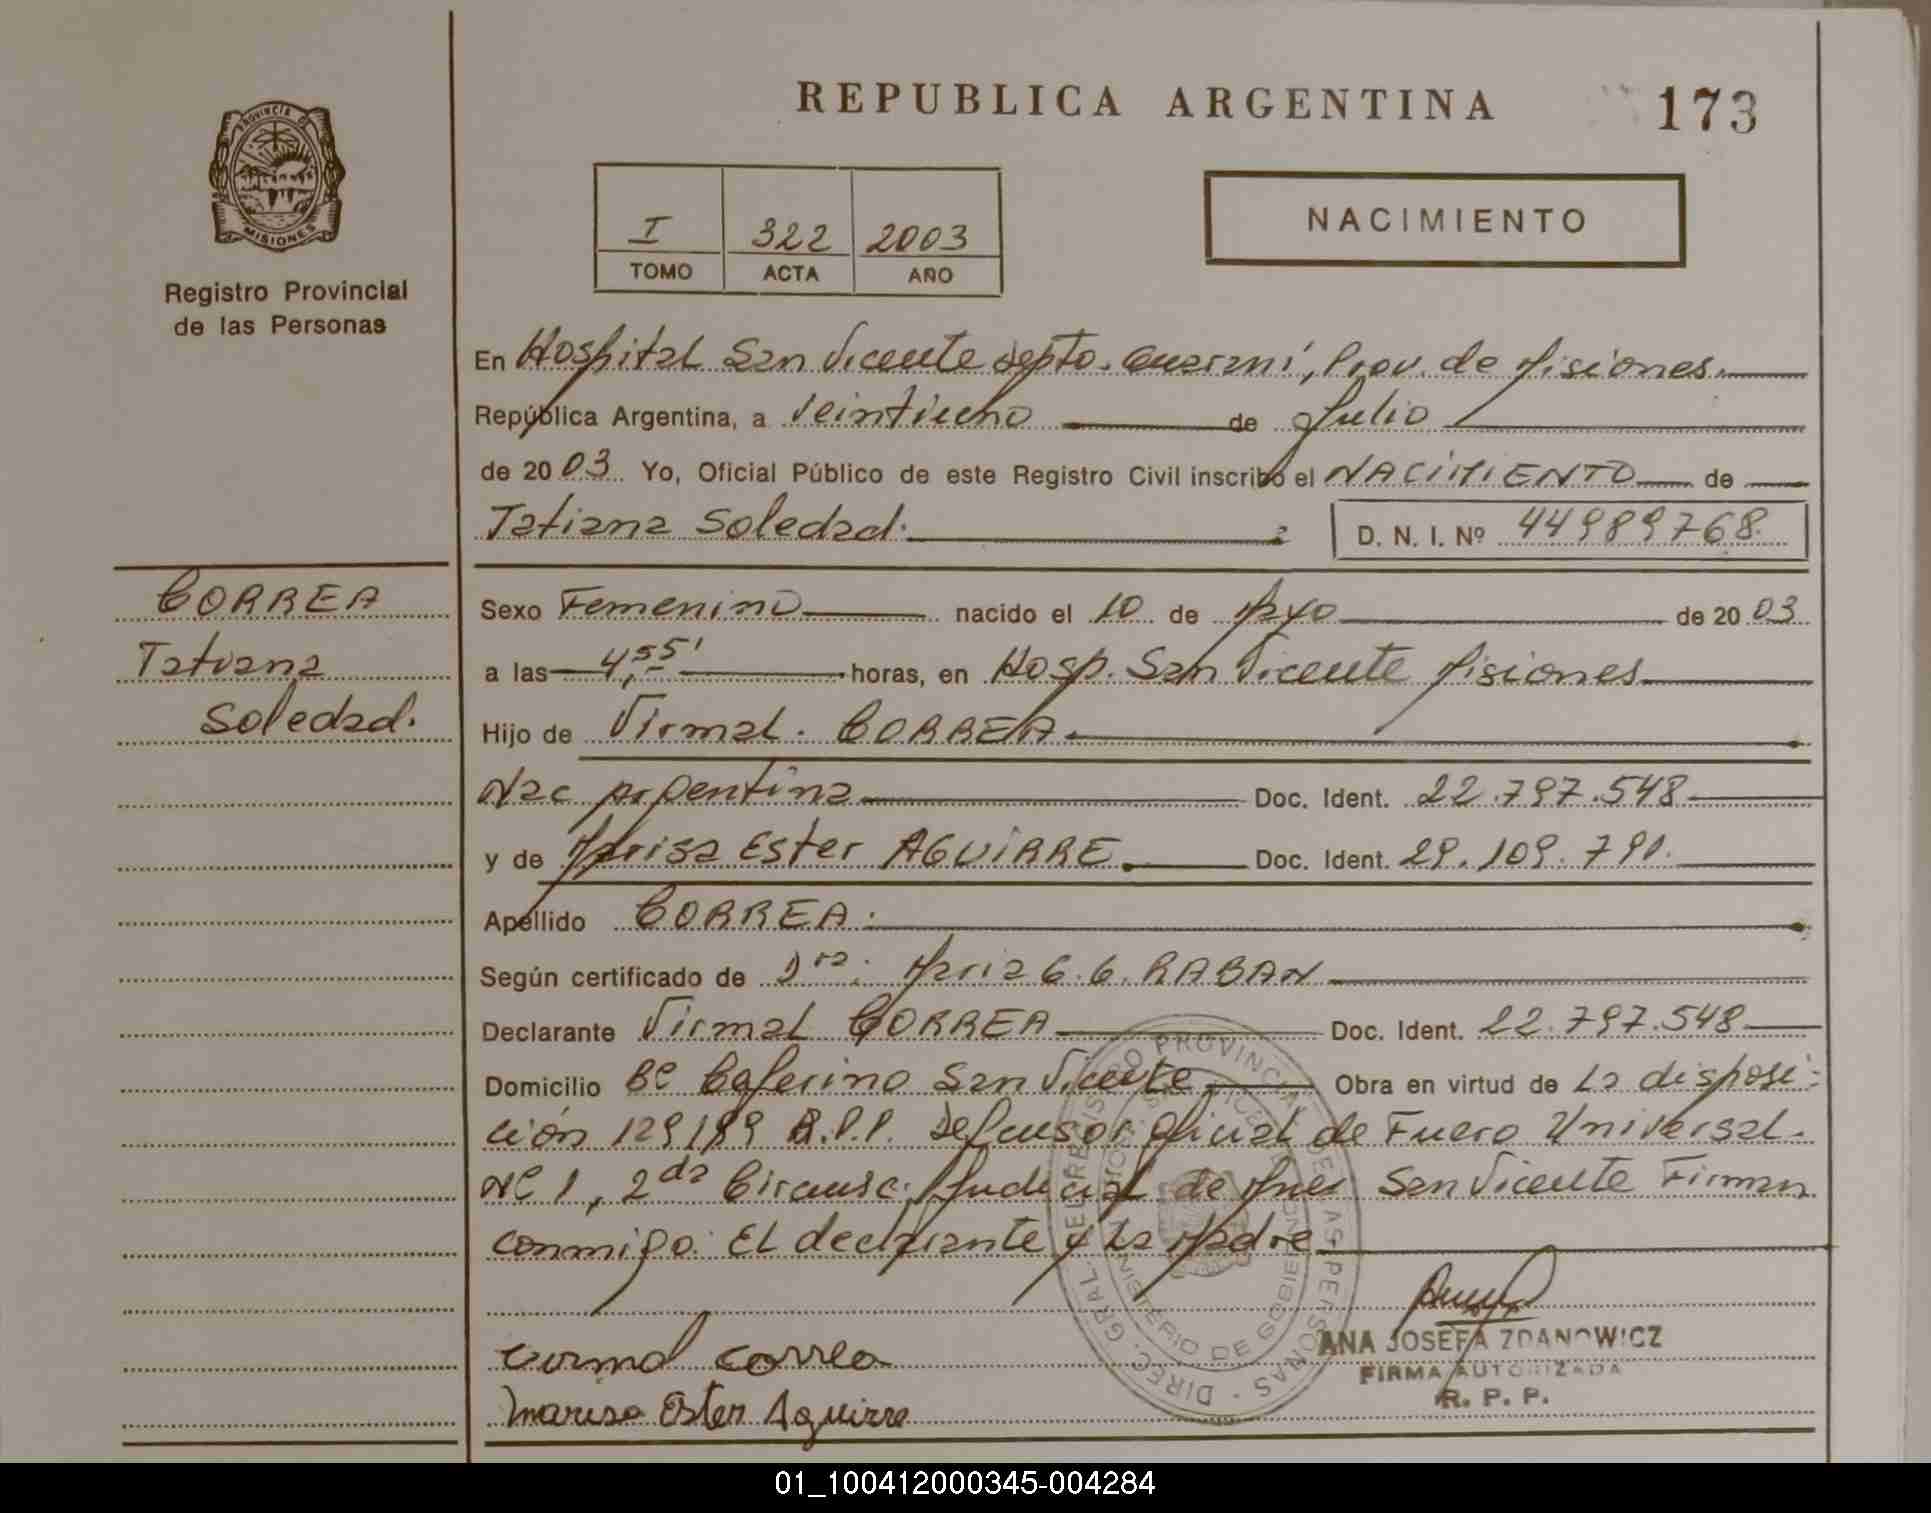 REPUBLICA ARGENTINA
173
PROVINCIA DE
MISIONES
Registro Provincial
de las Personas
I 322 2003
TOMO ACTA AÑO
NACIMIENTO
En Hospital San Vicente Depto. Guaraní, Prov. de Misiones.
República Argentina, a veintiuno de Julio
de 2003. Yo, Oficial Público de este Registro Civil inscribo el NACIMIENTO de
Tatiana Soledad.
D. N. I. Nº 44989768.
CORREA
Tatiana
Soledad.
Sexo Femenino nacido el 10 de Mayo de 2003
a las 4,55' horas, en Hosp. San Vicente Misiones
Hijo de Virmal. CORREA
Nac Argentina Doc. Ident. 22.797.548
y de Marisa Ester AGUIRRE. Doc. Ident. 29.109.791.
Apellido CORREA.
Según certificado de Dra: Maria G. G. RABAN
Declarante Virmal CORREA Doc. Ident. 22.797.548
Domicilio Bº Ceferino San Vicente Obra en virtud de La disposi-
ción 129/99 R.P.P. Defensor Oficial de Fuero Universal.
Nº 1, 2da Circunsc. Judicial de Mnes San Vicente Firman
conmigo: El declarante y La Madre
Virmal Correa
Marisa Ester Aguirre
DIREC. GRAL. DEL REGISTRO PROVINCIAL DE LAS PERSONAS
MINISTERIO DE GOBIERNO
ANA JOSEFA ZDANOWICZ
FIRMA AUTORIZADA
R. P. P.
01_100412000345-004284